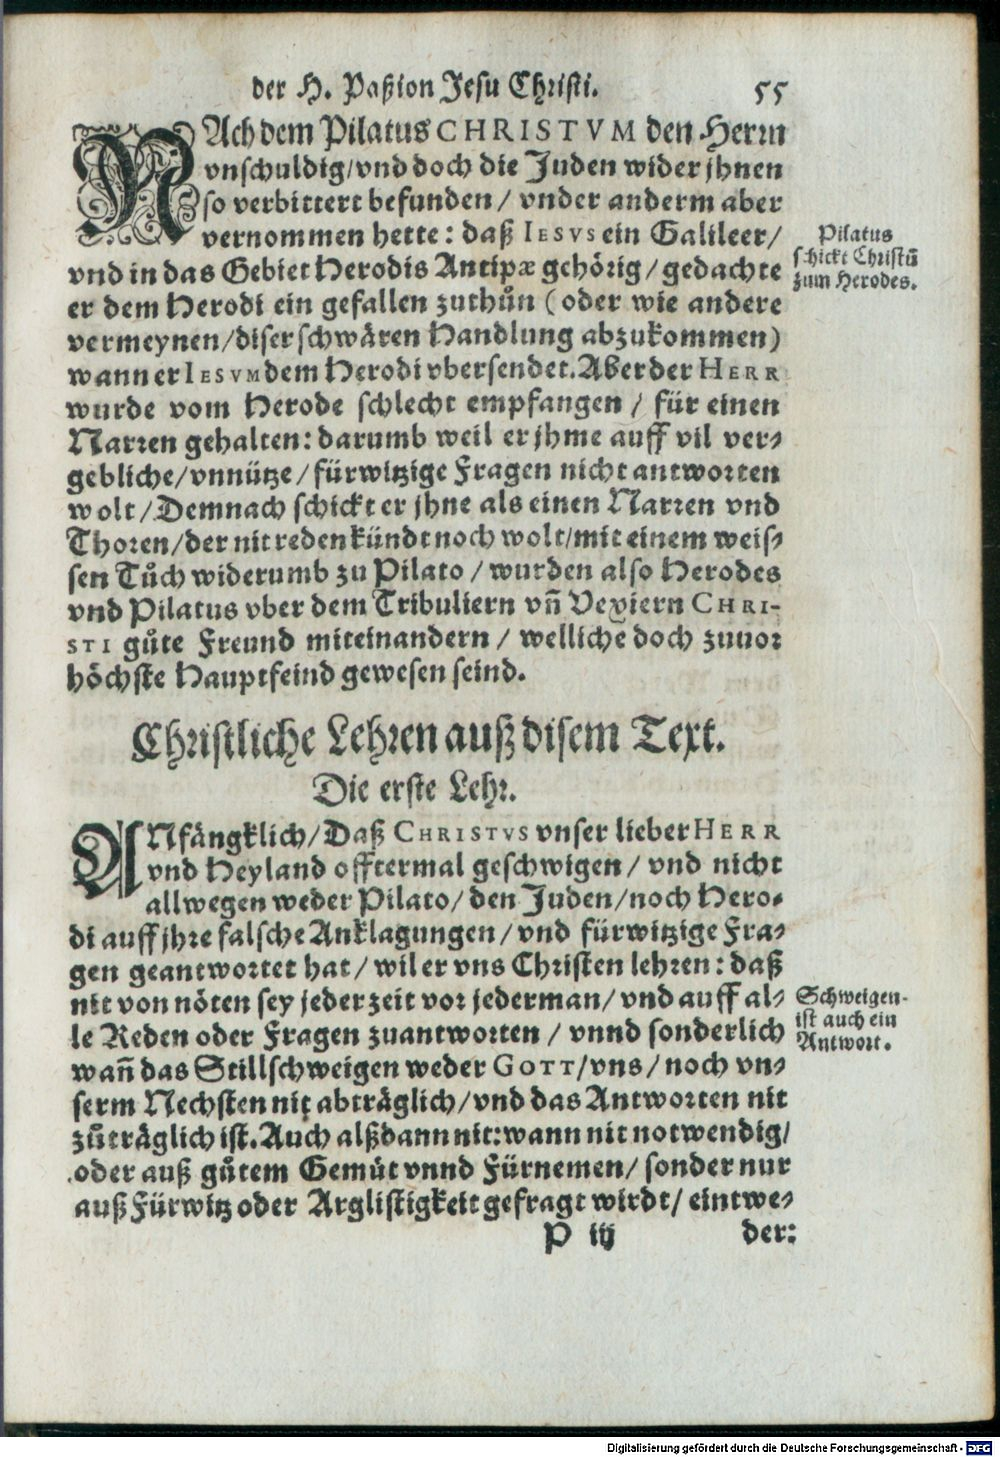 der H. Paßion Jesu Christi. 55
NAch dem Pilatus CHRISTVM den Herrn
vnschuldig/vnd doch die Juden wider jhnen
so verbittert befunden / vnder anderm aber
vernommen hette: daß IESVS ein Galileer/
vnd in das Gebiet Herodis Antipæ gehörig/gedachte
er dem Herodi ein gefallen zuthůn (oder wie andere
vermeynen/diser schwären Handlung abzukommen)
wann er IESVM dem Herodi vbersendet. Aber der HERR
wurde vom Herode schlecht empfangen / für einen
Narren gehalten: darumb weil er jhme auff vil ver-
gebliche/vnnütze/fürwitzige Fragen nicht antworten
wolt/Demnach schickt er jhne als einen Narren vnd
Thoren/der nit reden kündt noch wolt/mit einem weis-
sen Tůch widerumb zu Pilato / wurden also Herodes
vnd Pilatus vber dem Tribuliern vn̄ Vexiern CHRI-
STI gůte Freund miteinandern / welliche doch zuuor
höchste Hauptfeind gewesen seind.
Pilatus
schickt Christū
zum Herodes.
Christliche Lehren auß disem Text.
Die erste Lehr.
ANfängklich/Daß CHRISTVS vnser lieber HERR
vnd Heyland offtermal geschwigen / vnd nicht
allwegen weder Pilato/ den Juden/noch Hero-
di auff jhre falsche Anklagungen/vnd fürwitzige Fra-
gen geantwortet hat/ wil er vns Christen lehren: daß
nit von nöten sey jederzeit vor jederman/vnd auff al-
le Reden oder Fragen zuantworten / vnnd sonderlich
wan̄ das Stillschweigen weder GOTT/vns/noch vn-
serm Nechsten nit abträglich/vnd das Antworten nit
zůträglich ist. Auch alßdann nit: wann nit notwendig/
oder auß gůtem Gemüt vnnd Fürnemen/ sonder nur
auß Fürwitz oder Arglistigkeit gefragt wirdt/ eintwe-
Schweigen
ist auch ein
Antwort.
P iij der:
Digitalisierung gefördert durch die Deutsche Forschungsgemeinschaft - DFG